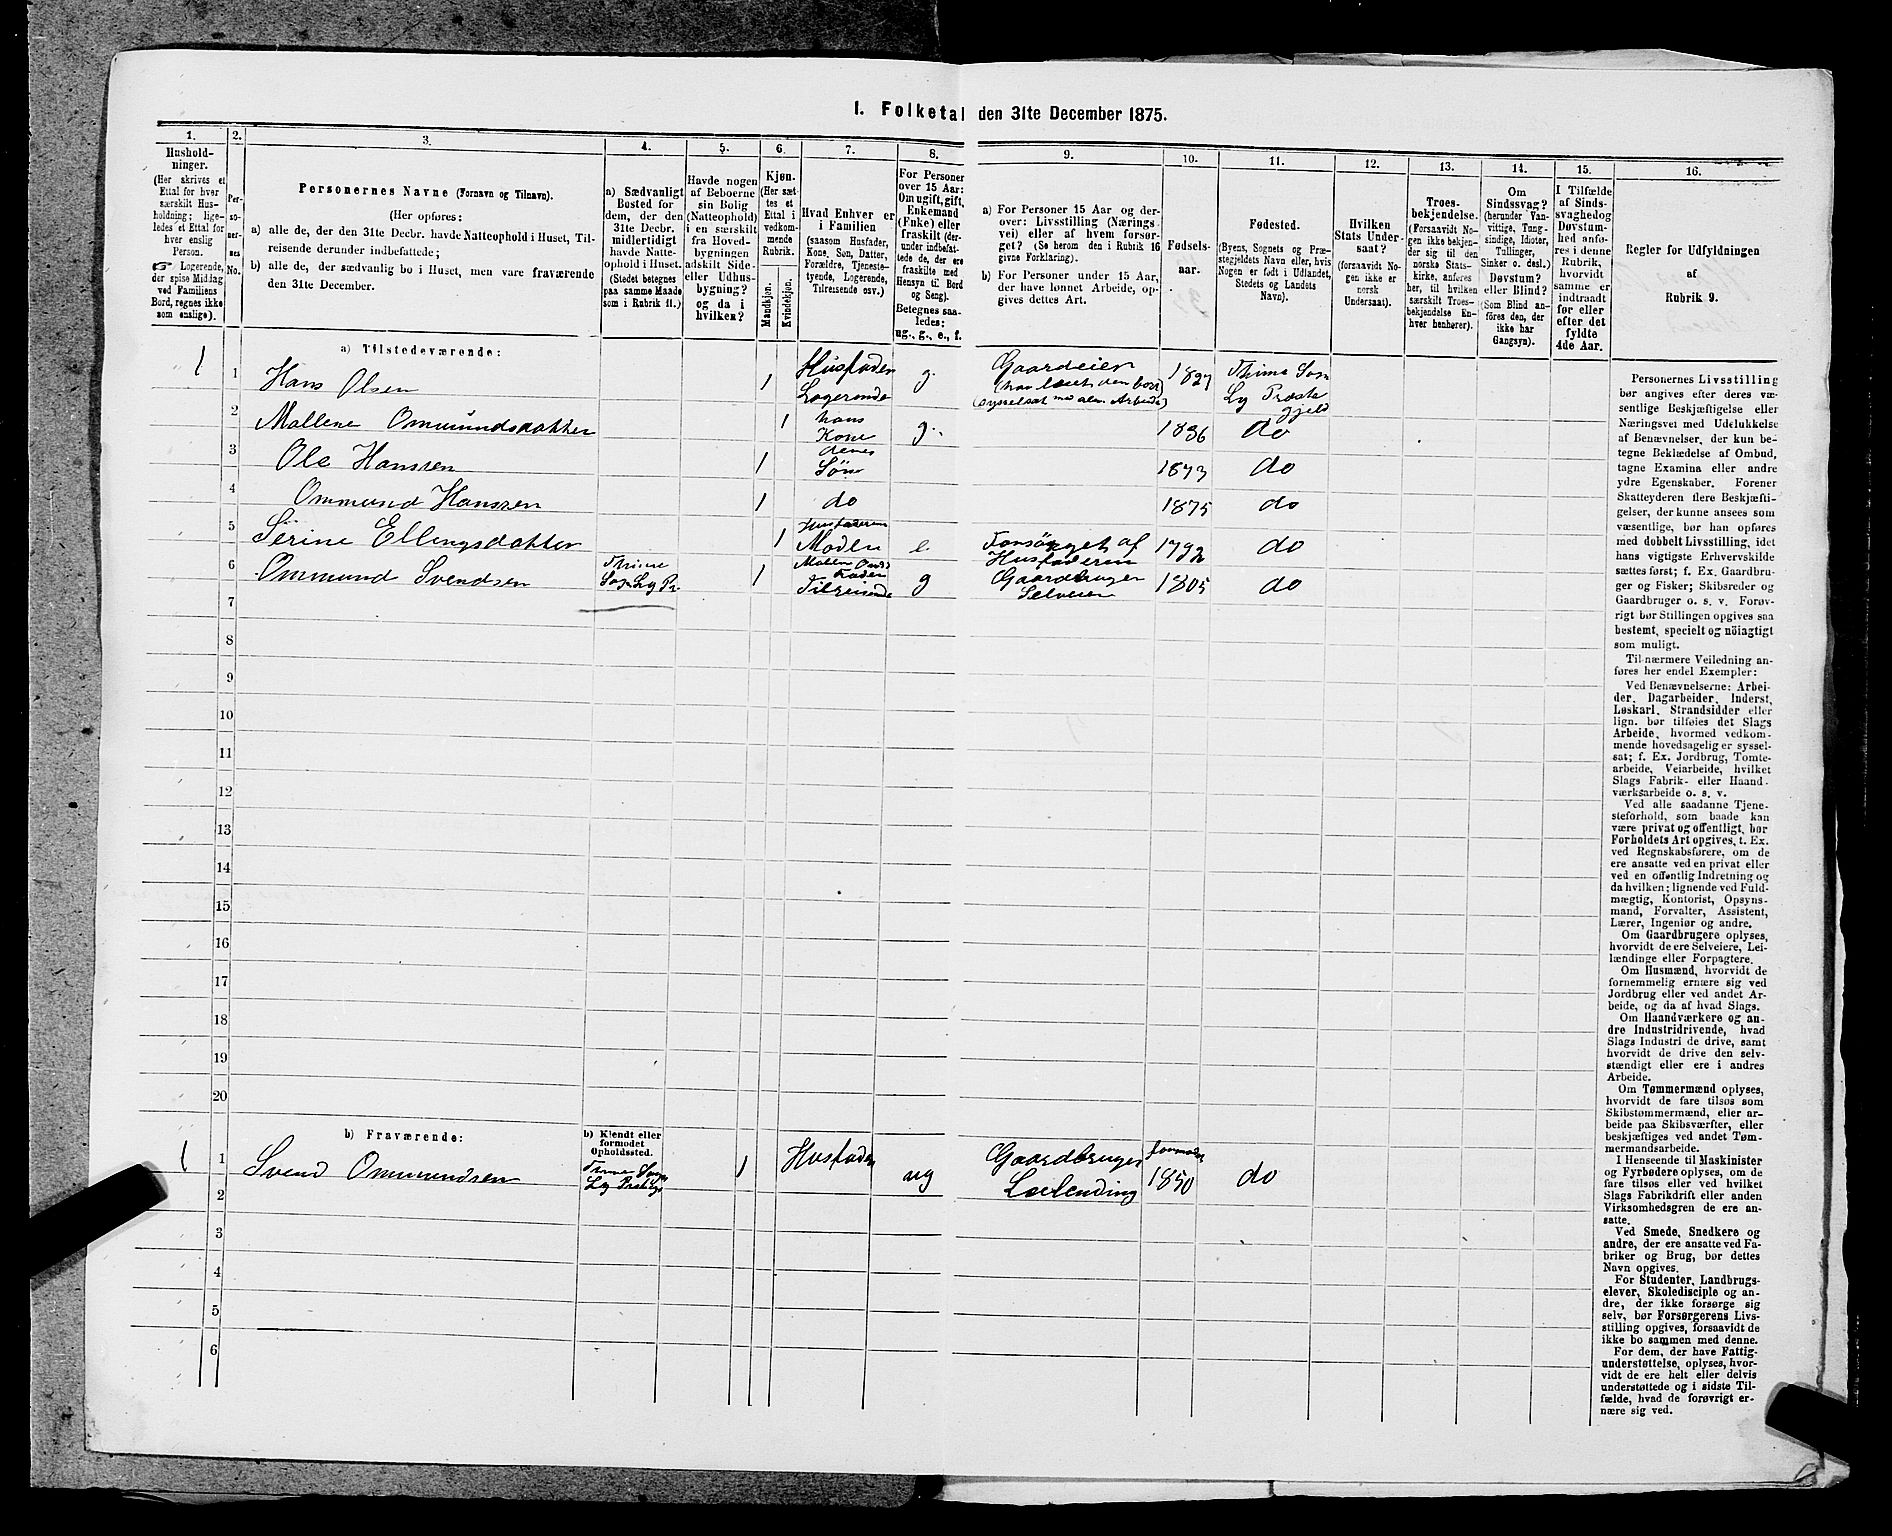 I. Folketal den 31te December 1875.
1.
Hushold-
ninger.
(Her skrives et
Ettal for hver
særskilt Hus-
holdning; lige-
ledes et Ettal for
hver enslig
Person.
☞ Logerende,
der spise Middag
ved Familiens
Bord, regnes ikke
som enslige).
2.
Per-
so-
ner-
nes
No.
3.
Personernes Navne (Fornavn og Tilnavn).
(Her opføres:
a) alle de, der den 31te Decbr. havde Natteophold i Huset, Til-
reisende derunder indbefattede;
b) alle de, der sædvanlig bo i Huset, men vare fraværende
den 31te December.
4.
a) Sædvanligt
Bosted for
dem, der den
31te Decbr.
midlertidigt
havde Natte-
ophold i Huset.
(Stedet betegnes
paa samme Maade
som i Rubrik 11.)
5.
Havde nogen
af Beboerne
sin Bolig
(Natteophold)
i en særskilt
fra Hoved-
bygningen
adskilt Side-
eller Udhus-
bygning?
og da i
hvilken?
6.
Kjøn.
(Her sæt-
tes et
Ettal i
vedkom-
mende
Rubrik.
Mandkjøn.
Kvindekjøn.
7.
Hvad Enhver er
i Familien
(saasom Husfader,
Kone, Søn, Datter,
Forældre, Tjeneste-
tyende, Logerende,
Tilreisende osv.)
8.
For Personer
over 15 Aar:
Om ugift, gift,
Enkemand
(Enke) eller
fraskilt (der-
under indbefat-
tede de, der ere
fraskilte med
Hensyn til Bord
og Seng).
Betegnes saa-
ledes:
ug., g., e., f.
9.
a) For Personer 15 Aar og der-
over: Livsstilling (Nærings-
vei) eller af hvem forsør-
get? (Se herom den i Rubrik 16
givne Forklaring).
b) For Personer under 15 Aar,
der have lønnet Arbeide, op-
gives dettes Art.
10.
Fødsels-
aar.
11.
Fødested.
(Byens, Sognets og Præ-
stegjeldets Navn eller, hvis
Nogen er født i Udlandet,
Stedets og Landets
Navn).
12.
Hvilken
Stats Under-
saat?
(forsaavidt No-
gen ikke er
norsk
Undersaat).
13.
Troes-
bekjendelse.
(Forsaavidt No-
gen ikke bekjen-
der sig til den
norske Stats-
kirke, anføres
her, til hvilken
særskilt Troes-
bekjendelse En-
hver henhører).
14.
Om
Sindssvag?
(herunder Van-
vittige, Tung-
sindige, Idioter,
Tullinger,
Sinker o. desl.)
Døvstum?
eller Blind?
(Som Blind an-
føres den, der
ikke har
Gangsyn).
15.
I Tilfælde
af Sinds-
svaghed og
Døvstum-
hed anfø-
res i denne
Rubrik,
hvorvidt
samme er
indtraadt
før eller
efter det
fyldte
4de Aar.
16.
Regler for Udfyldningen
af
Rubrik 9.
a) Tilstedeværende:
1 1 Hans Olsen 1 Husfader Logerende g. Gaardeier (har leiet den bort sysselsat med alm. Arbeide) 1827 Thime Sogn Ly Præste gjeld
2 Mallene Ommundsdatter 1 hans Kone g. 1836 do
3 Ole Hansen 1 deres Søn 1873 do
4 Ommund Hansen 1 do 1875 do
5 Serine Ellingsdatter 1 Husfaderen Moder e. Forsørget af Husfaderen 1792 do
6 Ommund Svendsen Thime Sogn Ly Pr. 1 Fader Tilreisende g Gaardbruger Selveier 1805 do
7
8
9
10
11
12
13
14
15
16
17
18
19
20
b) Fraværende:
b) Kjendt eller
formodet
Opholdssted.
1 1 Svend Ommundsen Thime Sogn Ly 1 Husfader ug Gaardbruger Leilending formodet 1850 do
2
3
4
5
6
Personernes Livsstilling
bør angives efter deres væ-
sentlige Beskjæftigelse eller
Næringsvei med Udelukkelse
af Benævnelser, der kun be-
tegne Beklædelse af Ombud,
tagne Examina eller andre
ydre Egenskaber. Forener
Skatteyderen flere Beskjæfti-
gelser, der kunne ansees som
væsentlige, bør han opføres
med dobbelt Livsstilling, idet
hans vigtigste Erhvervskilde
sættes først; f. Ex. Gaardbru-
ger og Fisker; Skibsreder og
Gaardbruger o. s. v. Forøv-
rigt bør Stillingen opgives saa
bestemt, specielt og nöiagtigt
som muligt.
Til nærmere Veiledning an-
føres her endel Exempler:
Ved Benævnelserne: Arbei-
der, Dagarbeider, Inderst,
Løskarl, Strandsidder eller
lign. bør tilføies det Slags
Arbeide, hvormed vedkom-
mende hovedsagelig er syssel-
sat; f. Ex. Jordbrug, Tomte-
arbeide, Veiarbeide, hvilket
Slags Fabrik- eller Haand-
værksarbeide o. s. v.
Ved alle saadanne Tjene-
steforhold, som baade kan
være privat og offentligt, bør
Forholdets Art opgives, t. Ex.
ved Regnskabsførere, om de
ere ansatte ved en privat eller
ved en offentlig Indretning og
da hvilken; lignende ved Fuld-
mægtig, Kontorist, Opsyns-
mand, Forvalter, Assistent,
Lærer, Ingeniør og andre.
Om Gaardbrugere oplyses,
hvorvidt de ere Selveiere, Lei-
lændinge eller Forpagtere.
Om Husmænd, hvorvidt de
fornemmelig ernære sig ved
Jordbrug eller ved andet Ar-
beide, og da af hvad Slags.
Om Haandværkere og an-
dre Industridrivende, hvad
Slags Industri de drive, samt
hvorvidt de drive den selv-
stændigt eller ere i andres
Arbeide.
Om Tømmermænd oplyses,
hvorvidt de fare tilsøs som
Skibstømmermænd, eller ar-
beide paa Skibsværfter, eller
beskjæftiges ved andet Tøm-
mermandsarbeide.
I Henseende til Maskinister
og Fyrbødere oplyses, om de
fare tilsøs eller ved hvilket
Slags Fabrikdrift eller anden
Virksomhedsgren de ere an-
satte.
Ved Smede, Snedkere og
andre, der ere ansatte ved Fa-
briker og Brug, bør dettes
Navn opgives.
For Studenter, Landbrugs-
elever, Skoledisciple og an-
dre, der ikke forsørge sig
selv, bør Forsørgerens Livs-
stilling opgives, forsaavidt de
ikke bo sammen med denne.
For dem, der have Fattig-
understøttelse, oplyses, hvor-
vidt de ere helt eller delvis
understøttede og i sidste Til-
fælde, hvad de forøvrigt er-
nære sig ved.